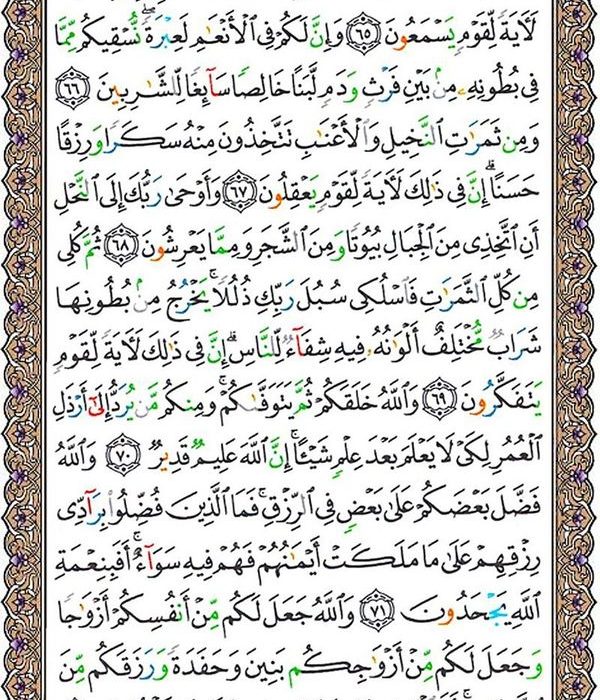 لَأَيَةً لِّقَوْمٍ يَسْمَعُونَ ٦٥ وَإِنَّ لَكُمْ فِي ٱلْأَنْعَٰمِ لَعِبْرَةً ۖ نُّسْقِيكُم مِّمَّا
فِي بُطُونِهِۦ مِنۢ بَيْنِ فَرْثٍ وَدَمٍ لَّبَنًا خَالِصًا سَآئِغًا لِّلشَّٰرِبِينَ ٦٦
وَمِن ثَمَرَٰتِ ٱلنَّخِيلِ وَٱلْأَعْنَٰبِ تَتَّخِذُونَ مِنْهُ سَكَرًا وَرِزْقًا
حَسَنًا ۗ إِنَّ فِي ذَٰلِكَ لَأَيَةً لِّقَوْمٍ يَعْقِلُونَ ٦٧ وَأَوْحَىٰ رَبُّكَ إِلَى ٱلنَّحْلِ
أَنِ ٱتَّخِذِي مِنَ ٱلْجِبَالِ بُيُوتًا وَمِنَ ٱلشَّجَرِ وَمِمَّا يَعْرِشُونَ ٦٨ ثُمَّ كُلِي
مِن كُلِّ ٱلثَّمَرَٰتِ فَٱسْلُكِي سُبُلَ رَبِّكِ ذُلُلًا ۚ يَخْرُجُ مِنۢ بُطُونِهَا
شَرَابٌ مُّخْتَلِفٌ أَلْوَٰنُهُۥ فِيهِ شِفَآءٌ لِّلنَّاسِ ۗ إِنَّ فِي ذَٰلِكَ لَأَيَةً لِّقَوْمٍ
يَتَفَكَّرُونَ ٦٩ وَٱللَّهُ خَلَقَكُمْ ثُمَّ يَتَوَفَّىٰكُمْ ۚ وَمِنكُم مَّن يُرَدُّ إِلَىٰٓ أَرْذَلِ
ٱلْعُمُرِ لِكَيْ لَا يَعْلَمَ بَعْدَ عِلْمٍ شَيْـًٔا ۚ إِنَّ ٱللَّهَ عَلِيمٌ قَدِيرٌ ٧٠ وَٱللَّهُ
فَضَّلَ بَعْضَكُمْ عَلَىٰ بَعْضٍ فِي ٱلرِّزْقِ ۚ فَمَا ٱلَّذِينَ فُضِّلُوا۟ بِرَآدِّي
رِزْقِهِمْ عَلَىٰ مَا مَلَكَتْ أَيْمَٰنُهُمْ فَهُمْ فِيهِ سَوَآءٌ ۚ أَفَبِنِعْمَةِ
ٱللَّهِ يَجْحَدُونَ ٧١ وَٱللَّهُ جَعَلَ لَكُم مِّنْ أَنفُسِكُمْ أَزْوَٰجًا
وَجَعَلَ لَكُم مِّنْ أَزْوَٰجِكُم بَنِينَ وَحَفَدَةً وَرَزَقَكُم مِّنَ